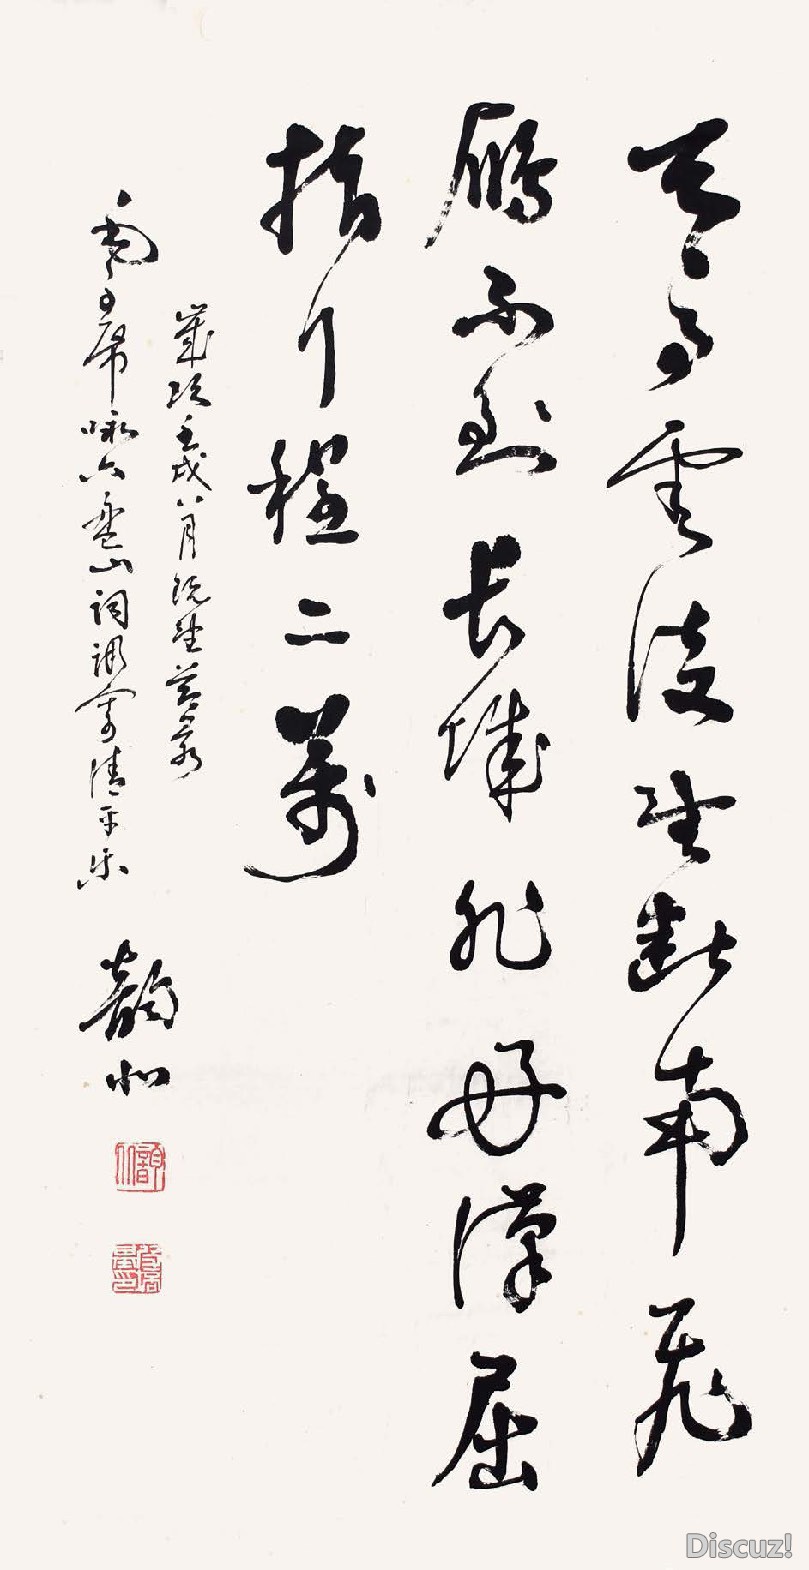 天高雲淡望斷南飛
鴈不到长城非好漢屈
指行程二萬
歲次壬戌八月既望
毛主席咏六盘山詞調寄清平乐
韻
Discuz!